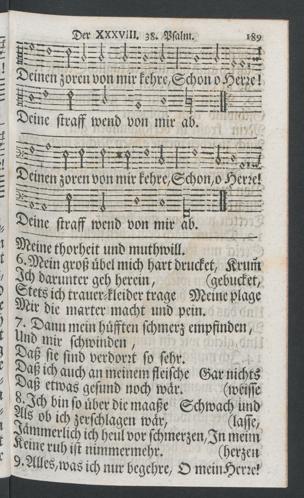 Der XXXVIII. 38. Psalm. 189
Deinen zoren von mir kehre, Schon o Herre!
Deine straff wend von mir ab.
Deinen zoren von mir kehre, Schon, o Herre!
Deine straff wend von mir ab.
Meine thorheit und muthwill.
6. Mein groß übel mich hart drucket, Krum̃
Ich darunter geh herein, (gebucket,
Stets ich trauer-kleider trage Meine plage
Mir die marter macht und pein.
7. Dann mein hüfften schmerz empfinden,
Und mir schwinden,
Daß sie sind verdorꝛt so sehr.
Daß ich auch an meinem fleische Gar nichts
Daß etwas gesund noch wär. (weisse
8. Ich bin so über die maaße Schwach und
Als ob ich zerschlagen wär, (lasse,
Jämmerlich ich heul vor schmerzen, In meim
Keine ruh ist nimmermehr. (herzen
9. Alles, was ich nur begehre, O mein Herre!